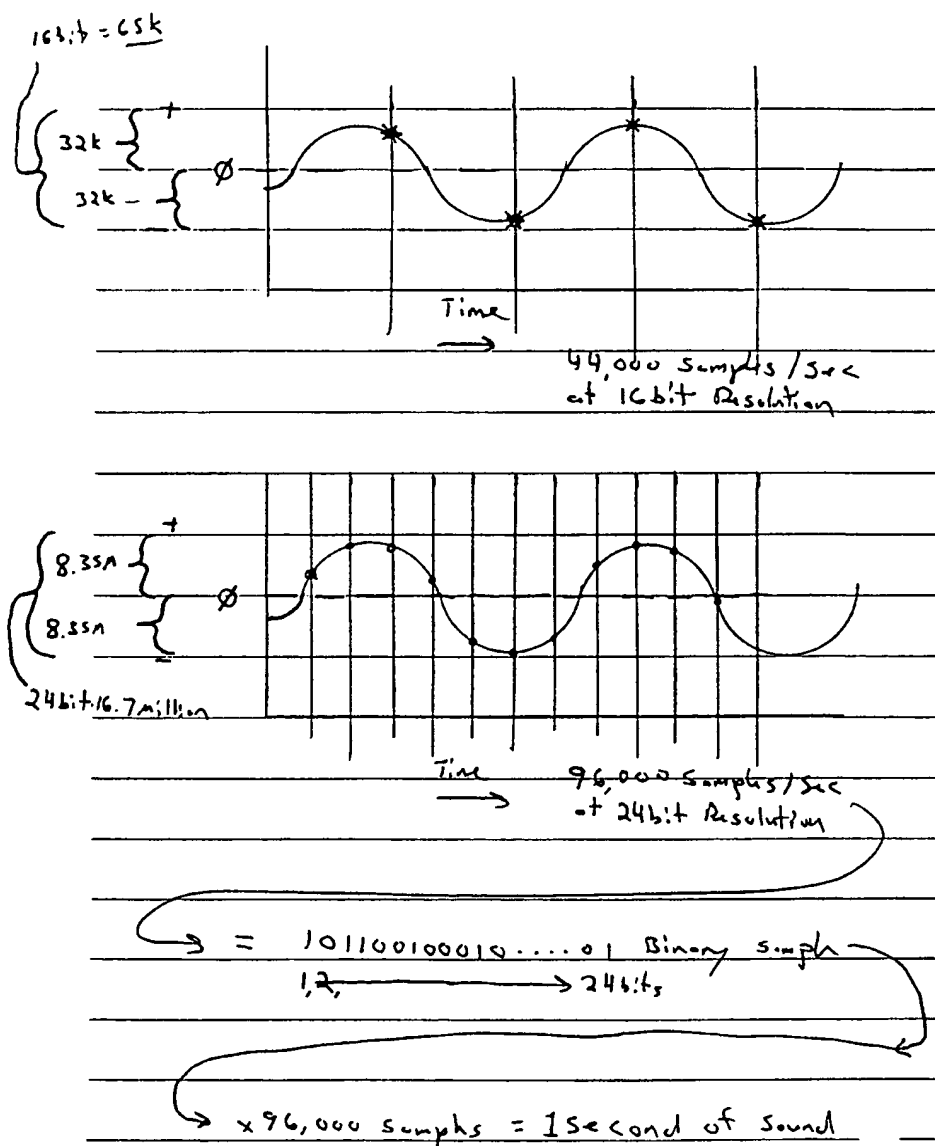 16bit = 65k
+
32k
Ø
32k -
Time
44,000 Samples/Sec
at 16bit Resolution
+
8.35M
Ø
8.35M
-
24bit. 16.7 Million
Time
96,000 Samples/Sec
at 24bit Resolution
= 101100100010.....01 Binary sample
1,2, 24bits
x 96,000 samples = 1 Second of Sound